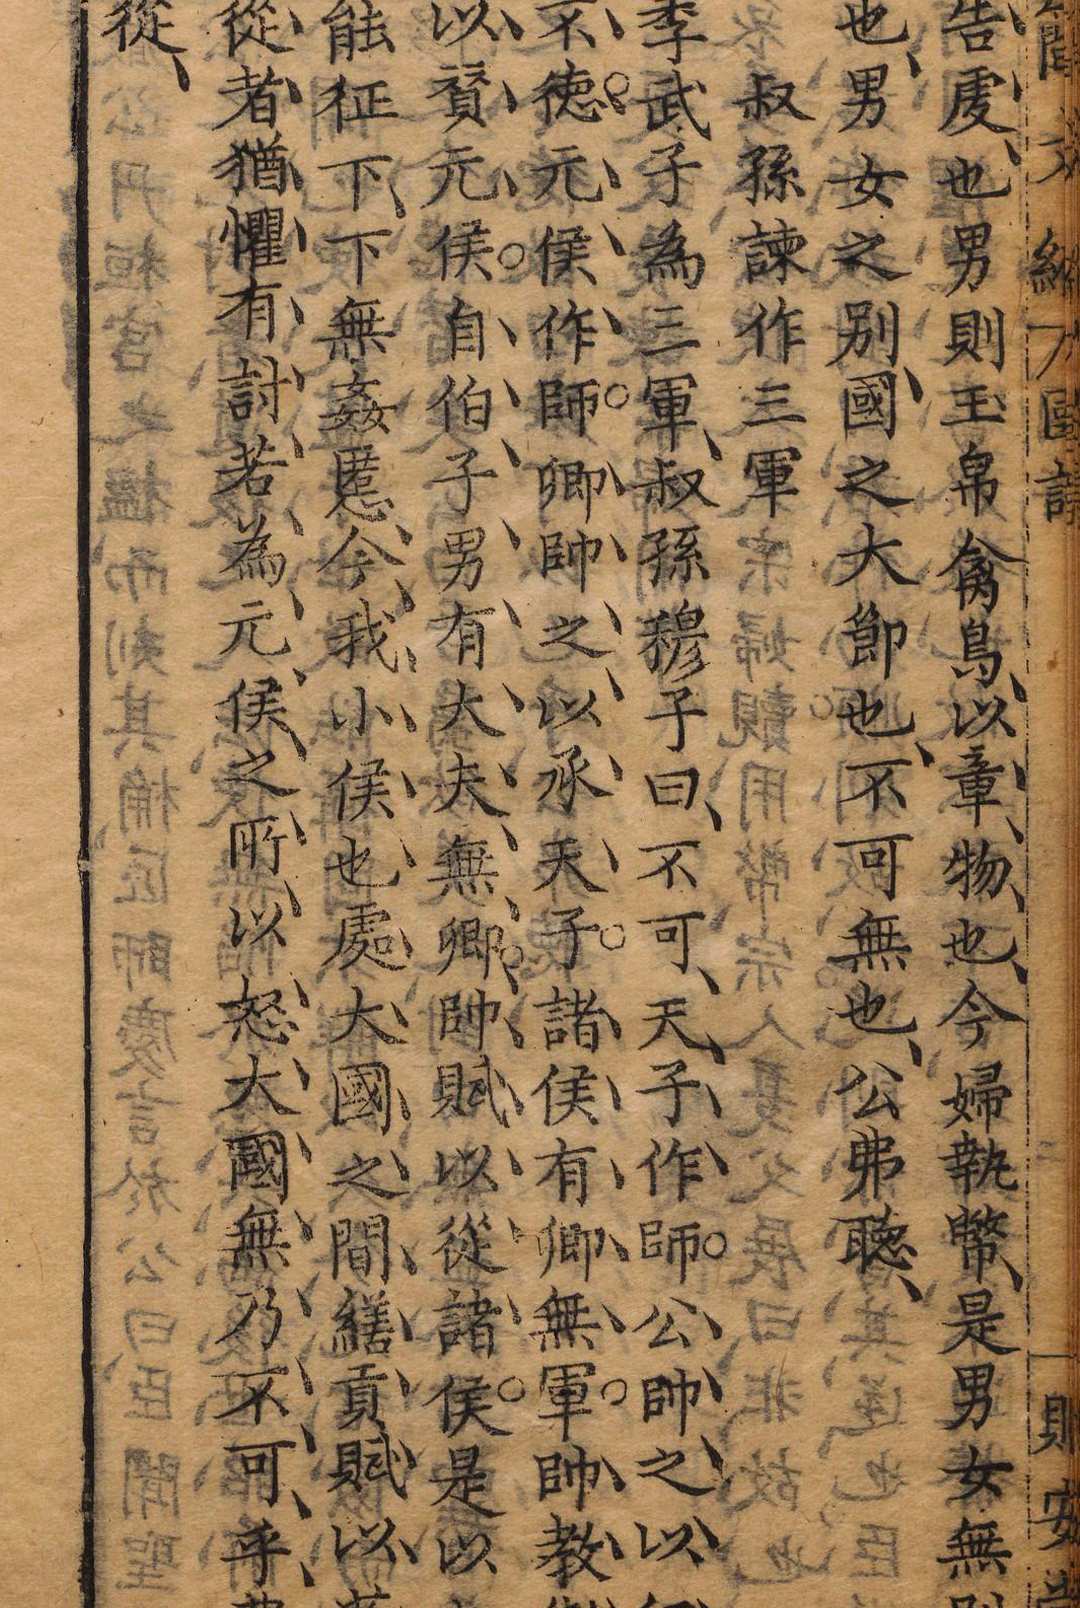 告虔也男則玉帛禽鳥以章物也今婦執幣是男女無別
也男女之別國之大節也不可無也公弗聽
叔孫諫作三軍
季武子為三軍叔孫穆子曰不可天子作師公帥之以
不德元侯作師卿帥之以承天子諸侯有卿無軍帥教
以賛元侯自伯子男有大夫無卿帥賦以從諸侯是以
能征下下無姦慝今我小侯也處大國之間繕貢賦以
從者猶懼有討若為元侯之所以怒大國無乃不可乎
從